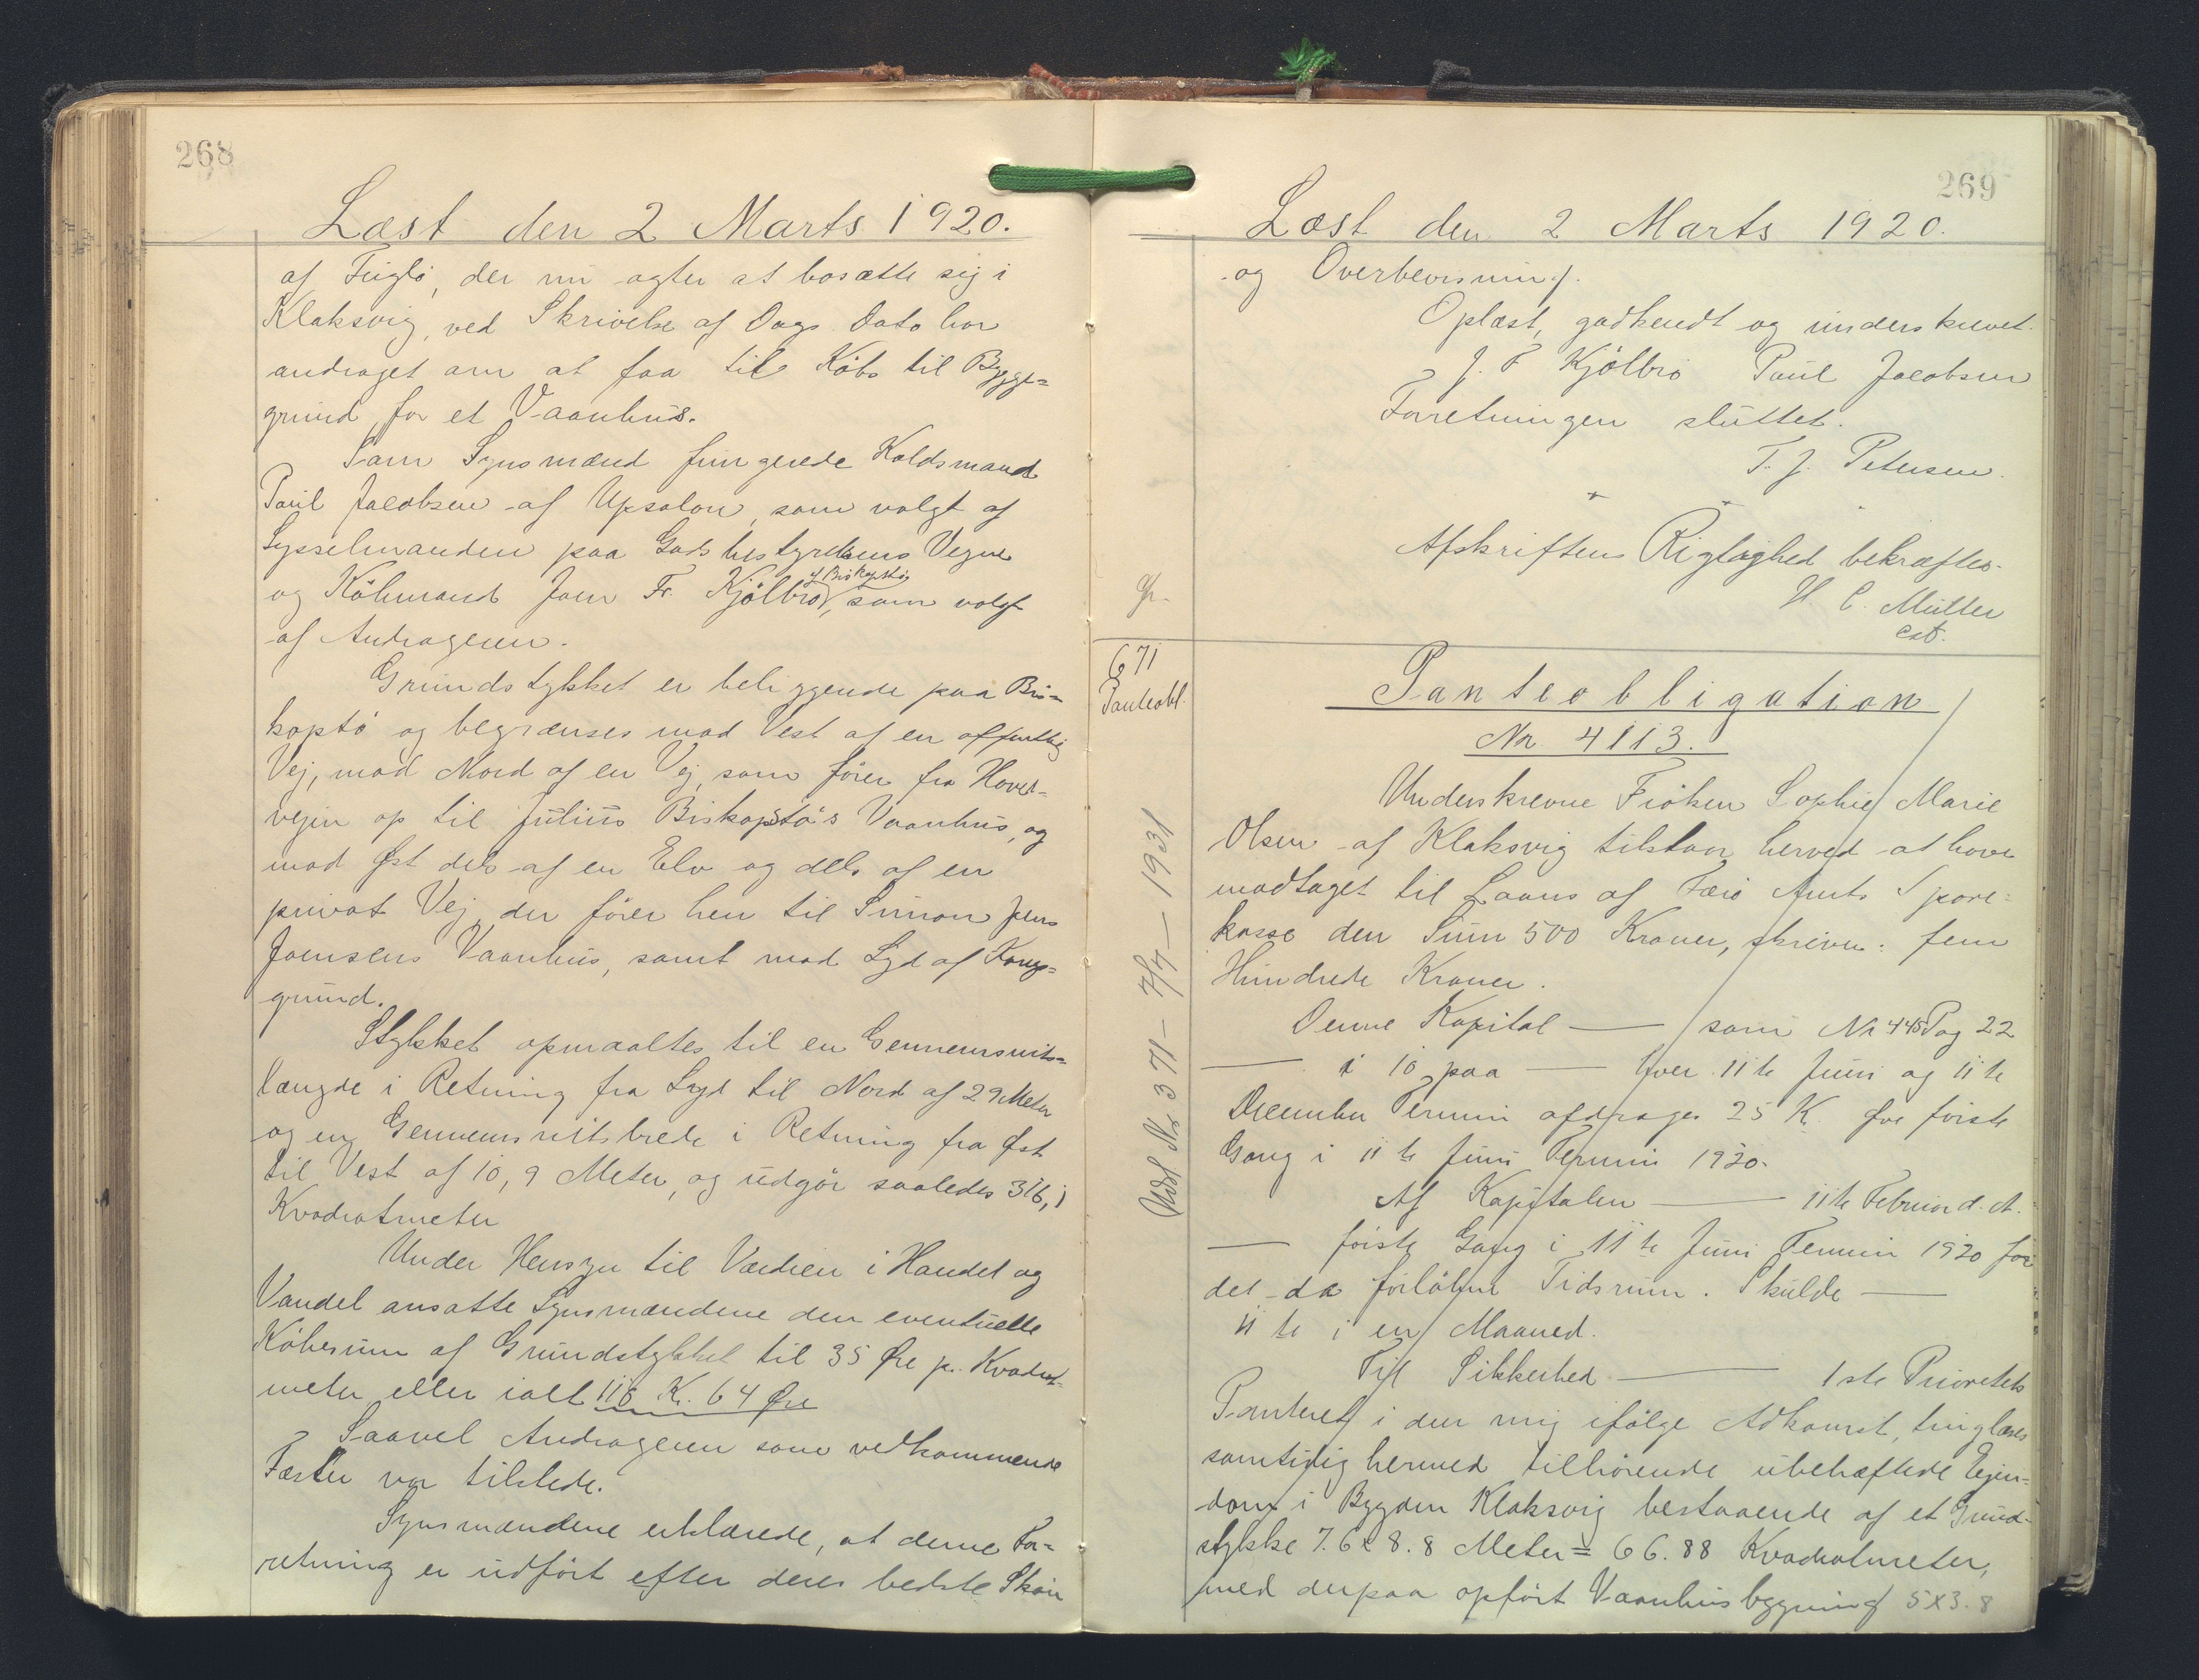 268
Læst den 2 Marts 1920.
af Fuglö, der nu agter at bosætte sig i
Klaksvig, ved Skrivelse af Dags Dato har
andraget om at faa til Købs til Bygge=
grund for et Vaanhus.
Som Synsmænd fungerede Koldsmand
Poul Jacobsen af Upsalon, som valgt af
Sysselmanden paa Godsbestyrelsens Vegne
og Köbmand Joen Fr. Kjölbro, af Biskopstö, som valgt
af Andrageren.
Grundstykket er beliggende paa Bis=
kopstö og begrænses mod Vest af en offentlig
Vej, mod Nord af en Vej, som förer fra Hoved=
vejen op til Julius Biskopstö's Vaanhus, og
mod Øst dels af en Elv og dels af en
privat Vej, der förer hen til Simon Jens
Joensens Vaanhus, samt mod Syd af Konge=
grund.
Stykket opmaaltes til en Gennemsnits=
længde i Retning fra Syd til Nord af 29 Meter
og en Gennemsnitsbrede i Retning fra Øst
til Vest af 10,9 Meter, og udgör saaledes 316,1
Kvadratmeter
Under Hensyn til Værdien i Handel og
Vandel ansatte Synsmændene den eventuelle
Köbesum af Grundstykket til 35 Øre pr. Kvadrat=
meter eller ialt 110 Kr. 64 Øre
Saavel Andrageren som vedkommende
Fæster var tilstede.
Synsmændene erklærede, at denne For=
retning er udfört efter deres bedste Skön
269
Læst den 2 Marts 1920.
og Overbevisning.
Oplæst, godkendt og underskrevet.
J. F Kjölbro Poul Jacobsen
Forretningen sluttet.
T. J. Petersen.
Afskriftens Rigtighed bekræftes.
H C. Müller
cst.
671
Panteobl.
Panteobligation
Nr. 4113.
Underskrevne Fröken Sophie Marie
Olsen af Klaksvig tilstaar herved at have
modtaget til Laans af Færö Amts Spare=
kasse den Sum 500 Kroner, skriver: fem
Hundrede Kroner.
Denne Kapital — som Nr 445 Pag 22
— i 10 paa — hver 11te Juni og 11te
December Termin afdrages 25 K. Øre förste
Gang i 11te Juni Termin 1920.
Af Kapitalen — 11te Februar d. A.
— förste Gang i 11te Juni Termin 1920 for
det da forløbne Tidsrum. Skulde —
11te i en Maaned.
Til Sikkerhed — 1ste Prioritets
Panteret i den mig ifölge Adkomst, tinglæst
samtidig hermed tilhörende ubehæftede Ejen=
dom i Bygden Klaksvig bestaaende af et Grund=
stykke 7.6 x 8.8 Meter = 66.88 Kvadratmeter,
med derpaa opfört Vaanhusbygning 5x3.8
Udsl Nr 371 - 7/7 - 1931